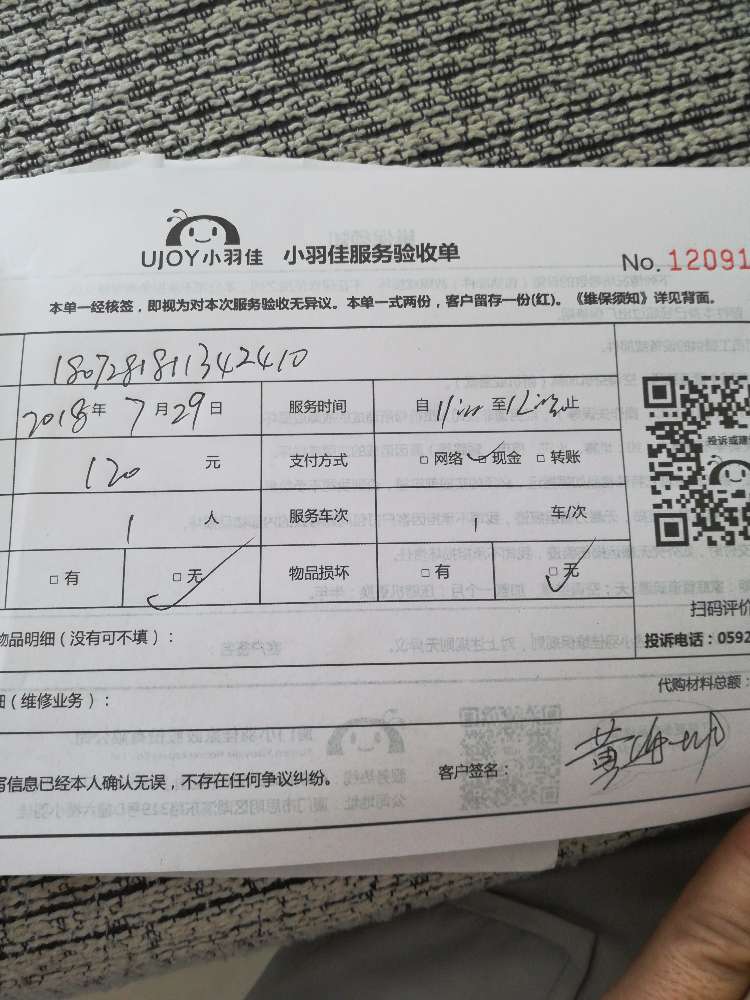 UJOY小羽佳 小羽佳服务验收单
No. 12091
本单一经核签，即视为对本次服务验收无异议。本单一式两份，客户留存一份(红)。《维保须知》详见背面。
1807281811342410
2018年 7月29日 服务时间 自 11:00 至 12:00 止
120 元 支付方式 □ 网络 □ 现金 □ 转账
1 人 服务车次 1 车/次
投诉或建
□ 有 □ 无 物品损坏 □ 有 □ 无
扫码评价
物品明细（没有可不填）：
投诉电话：0592
细（维修业务）：
代购材料总额：
写信息已经本人确认无误，不存在任何争议纠纷。 客户签名： 黄